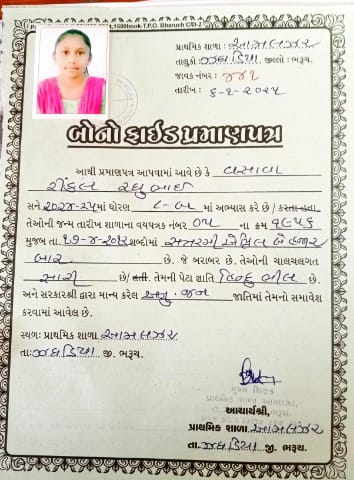 1500book-T.P.O. Bharuch C/D-2
પ્રાથમિક શાળા : આમલઝર
તાલુકો ઝઘડિયા જીલ્લો : ભરૂચ.
જાવક નંબર : ૪૪૧
તારીખ : ૬-૧-૨૦૨૫
બોનોફાઈડ પ્રમાણપત્ર
આથી પ્રમાણપત્ર આપવામાં આવે છે કે વસાવા
રાહુલભાઈ
સને ૨૦૨૪-૨૫માં ધોરણ ૮-બ માં અભ્યાસ કરે છે / કરતા હતા
તેઓની જન્મ તારીખ શાળાના વયપત્રક નંબર ૦૫ ના ક્રમ ૧૯૫૬
મુજબ તા. ૧૭-૪-૨૦૧૨ શબ્દોમાં સત્તરમી એપ્રિલ બે હજાર
બાર છે. જે બરાબર છે. તેઓની ચાલચલગત
સારી છે/ હતી. તેમની પેટા જ્ઞાતિ હિન્દુ ભીલ છે.
અને સરકારશ્રી દ્વારા માન્ય કરેલ અનુ. જન જાતિમાં તેમનો સમાવેશ
કરવામાં આવેલ છે.
સ્થળ: પ્રાથમિક શાળા આમલઝર
તા: ઝઘડિયા જી. ભરૂચ.
મુખ્ય શિક્ષક
પ્રાથમિક શાળા આમલઝર
આચાર્યશ્રી,
પ્રાથમિક શાળા આમલઝર
તા. ઝઘડિયા જી. ભરૂચ.